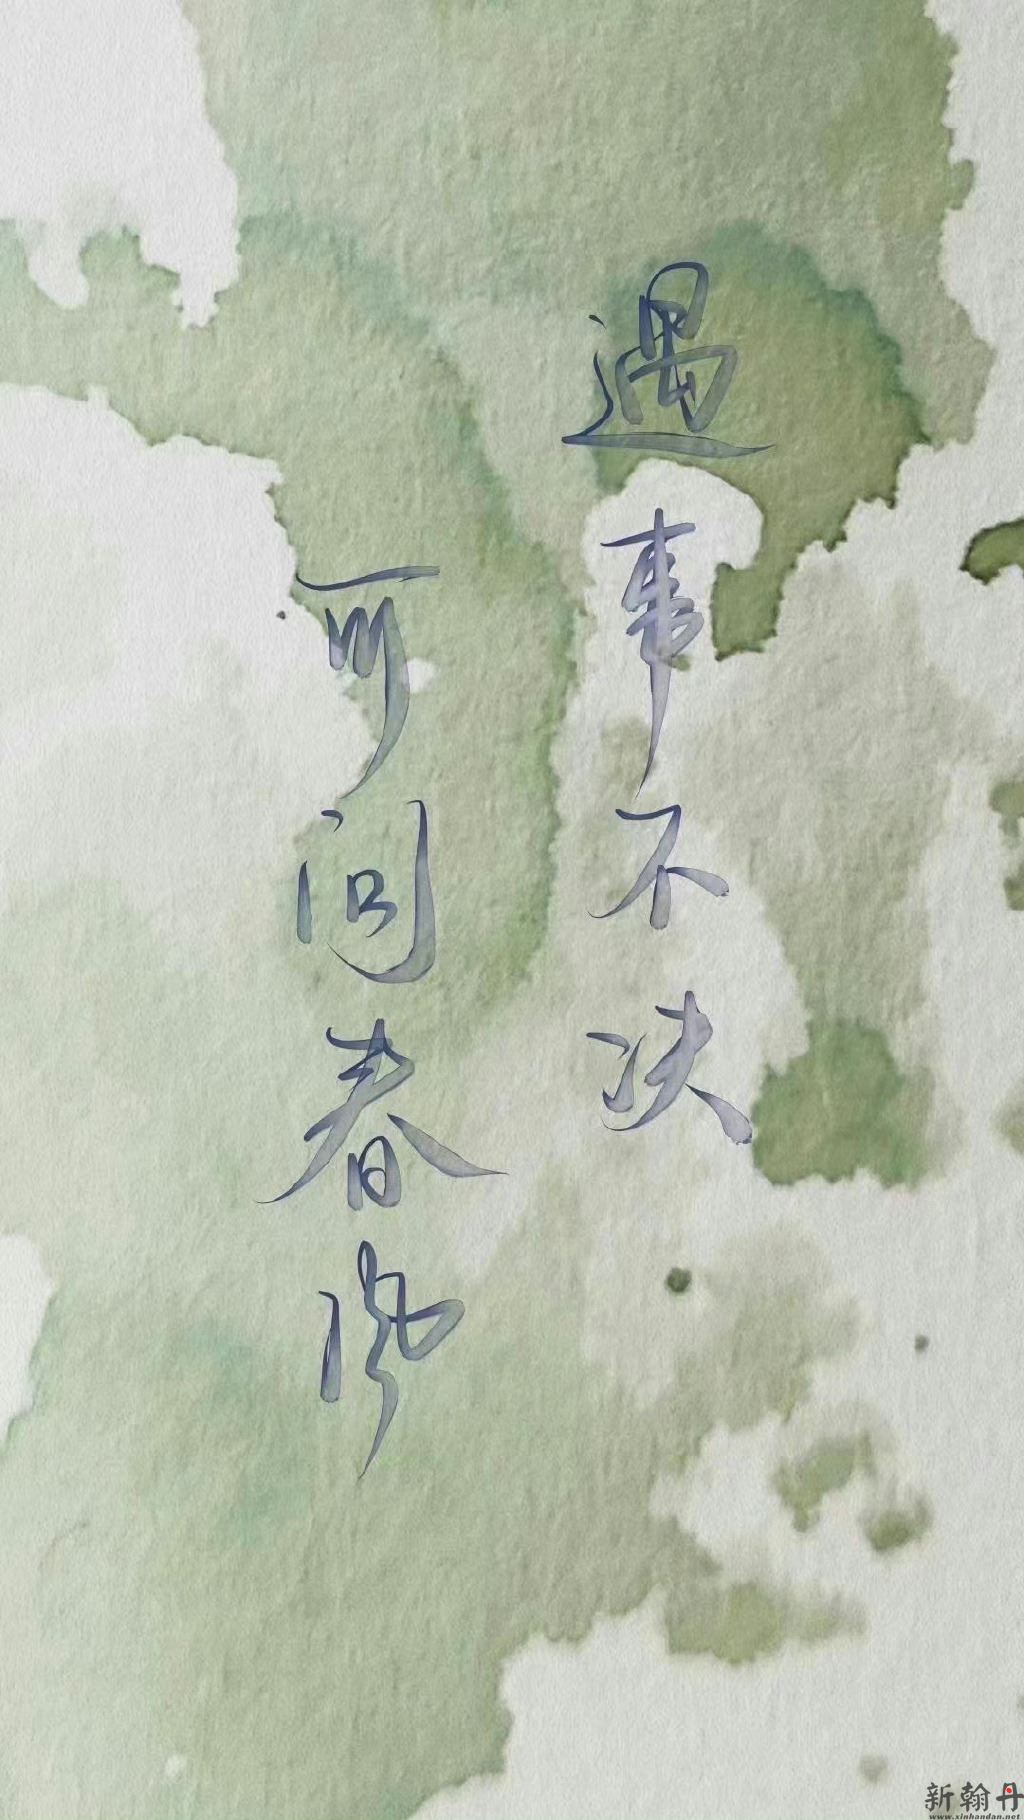 遇事不决
可问春风
新翰丹
www.xinhandan.net